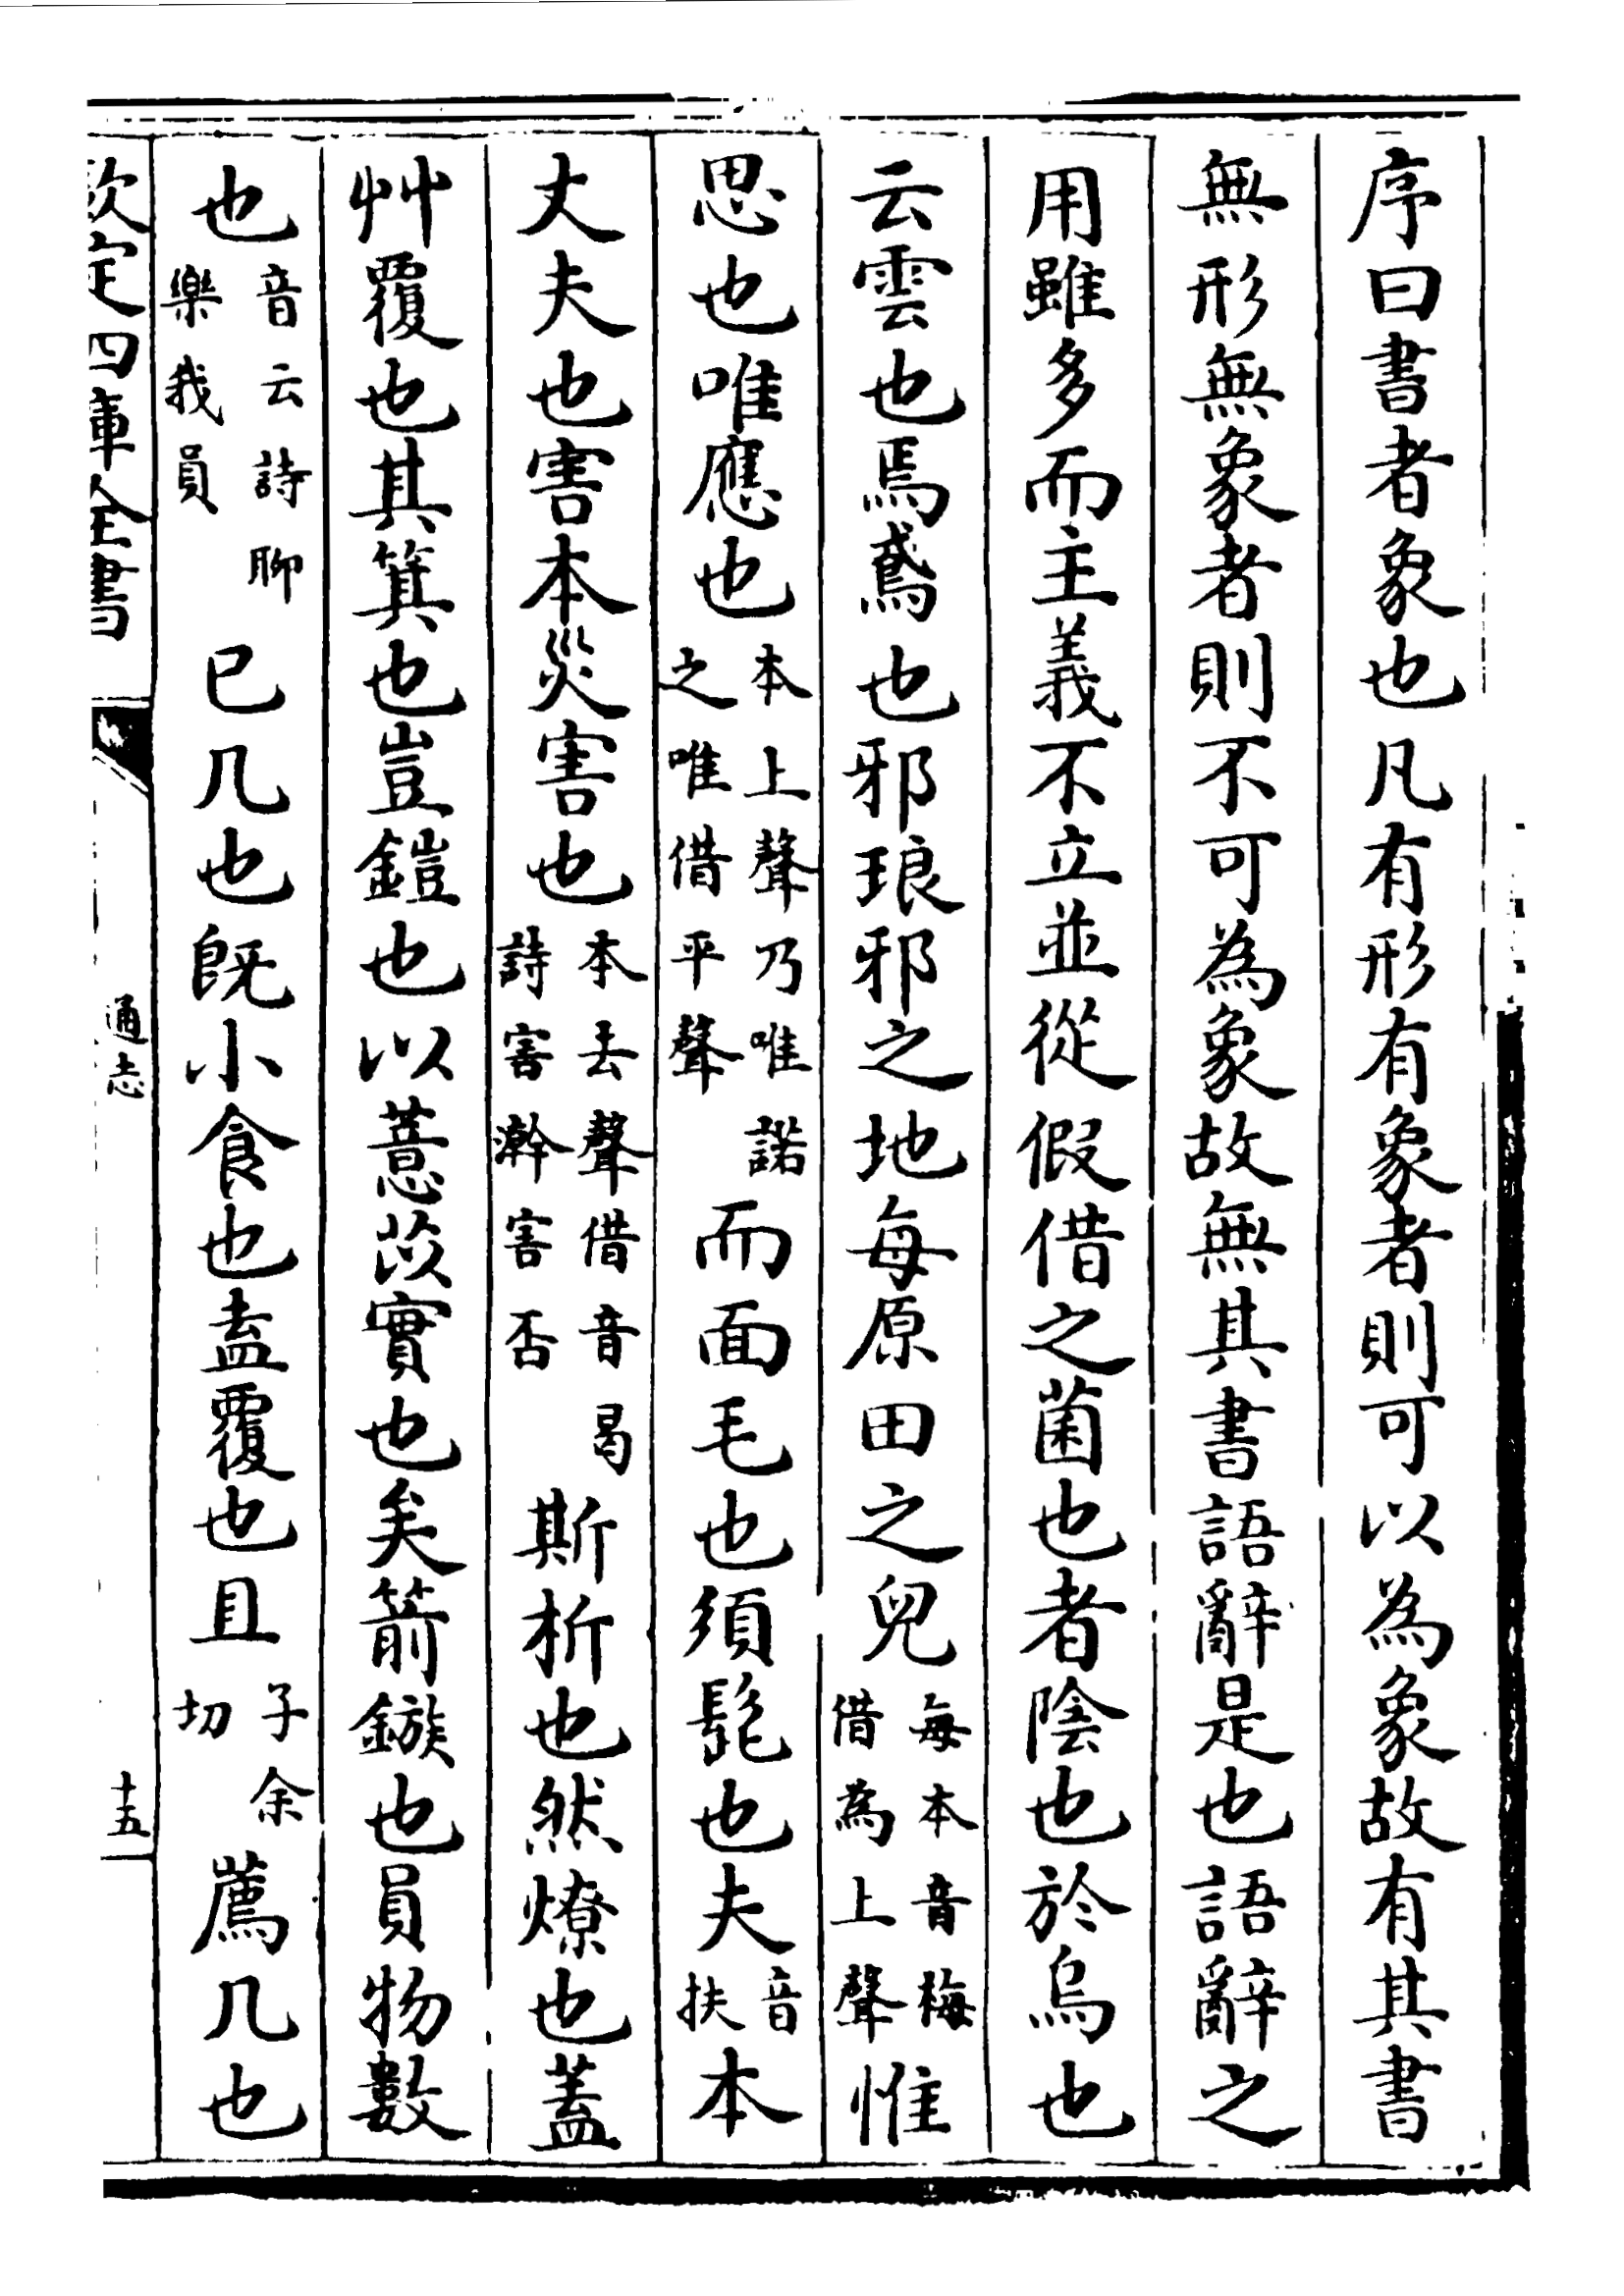 序曰書者象也凡有形有象者則可以為象故有其書
無形無象者則不可為象故無其書語辭是也語辭之
用雖多而主義不立並從假借之菌也者陰也於烏也
云雲也焉鳶也邪琅邪之地每原田之皃每本音梅借為上聲惟
思也唯應也本上聲乃唯諾之唯借平聲而面毛也須髭也夫音扶本
丈夫也害本災害也本去聲借音曷詩害澣害否斯析也然燎也蓋
艸覆也其箕也豈鎧也以薏苡實也矣箭鏃也員物數
也音云詩聊樂我員已几也既小食也盍覆也且子余切薦几也
欽定四庫全書
通志
十五